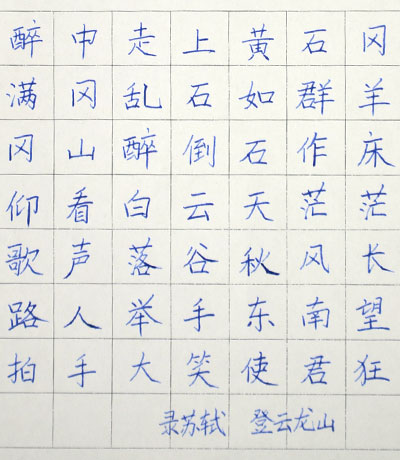 醉中走上黄石冈
满冈乱石如群羊
冈山醉倒石作床
仰看白云天茫茫
歌声落谷秋风长
路人举手东南望
拍手大笑使君狂
录苏轼 登云龙山